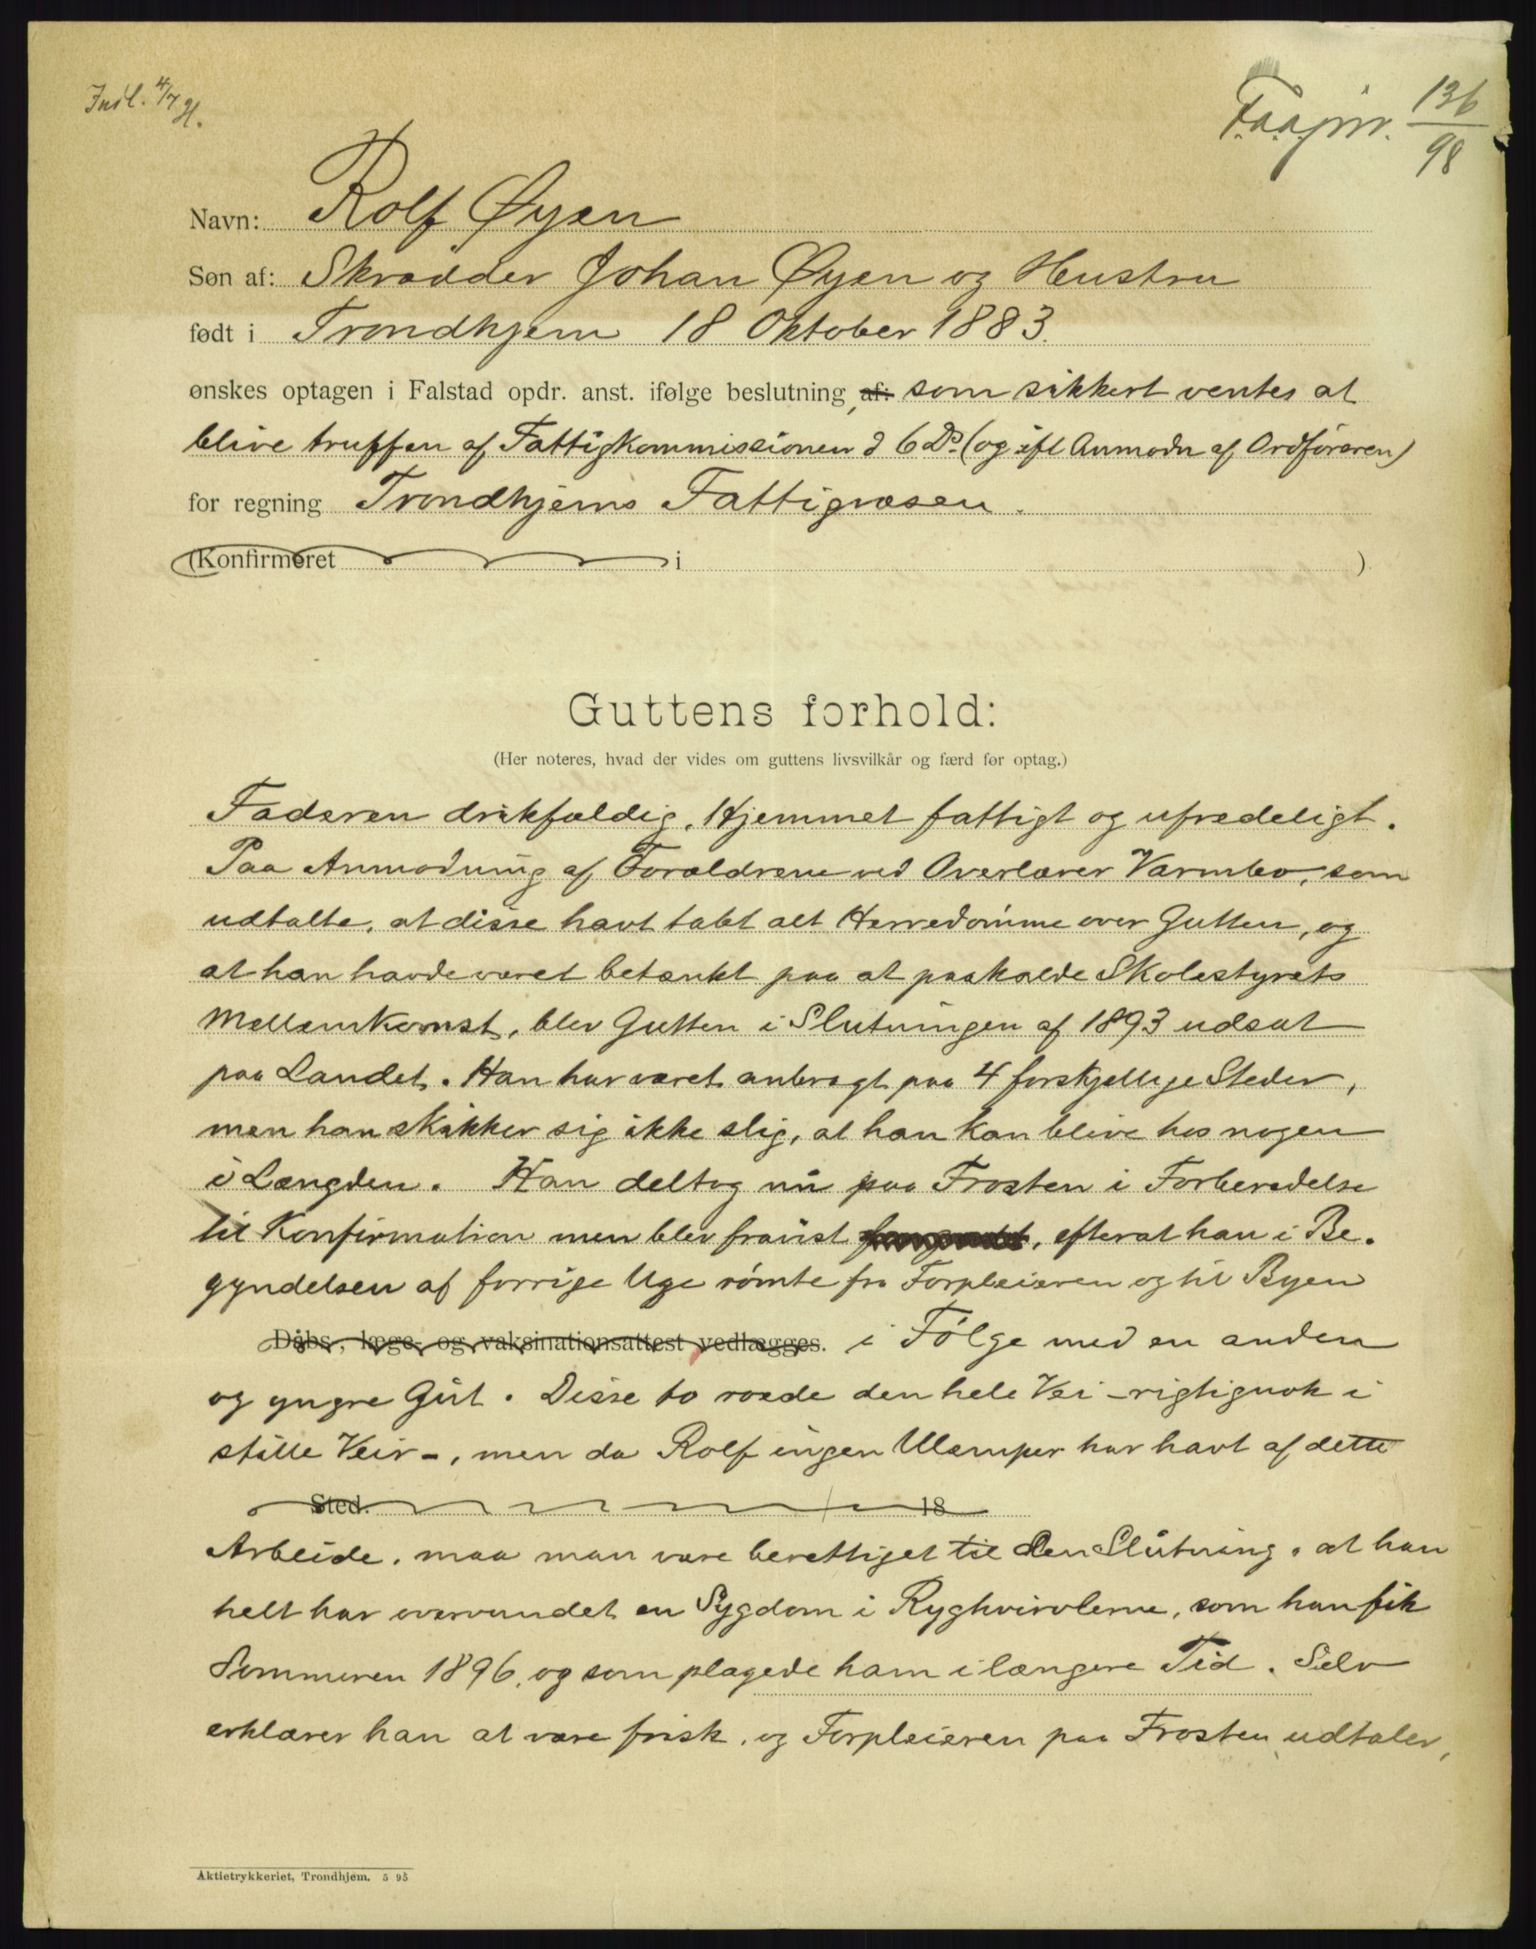 Indl. 4/7 98.
F.a.a. jnr. 136/98
Navn: Rolf Øyen
Søn af: Skrædder Johan Øyen og Hustru
født i Trondhjem 18 Oktober 1883.
ønskes optagen i Falstad opdr. anst. ifølge beslutning, af: som sikkert ventes at
blive truffen af Fattigkommissionen d 6 Ds. (og ifl Anmodn af Ordføreren)
for regning Trondhjems Fattigvæsen.
(Konfirmeret i )
Guttens forhold:
(Her noteres, hvad der vides om guttens livsvilkår og færd før optag.)
Faderen drikfældig. Hjemmet fattigt og ufredeligt.
Paa Anmodning af Forældrene ved Overlærer Varmbo, som
udtalte, at disse havt tabt alt Herredømme over Gutten, og
at han havde været betænkt paa at paakalde Skolestyrets
Mellemkomst, blev Gutten i Slutningen af 1893 udsat
paa Landet. Han har været anbragt paa 4 forskjellige Steder,
men han skikker sig ikke slig, at han kan blive hos nogen
i Længden. Han deltog nu paa Frosten i Forberedelse
til Konfirmation men blev fravist, efterat han i Be-
gyndelsen af forrige Uge rømte fra Forpleieren og til Byen
Dåbs-, læge- og vaksinationsattest vedlægges. i Følge med en anden
og yngre Gut. Disse to roede den hele Vei - rigtignok i
stille Veir -, men da Rolf ingen Ulæmper har havt af dette
Sted. 18
Arbeide, maa man være berettiget til den Slutning, at han
helt har overvundet en Sygdom i Ryghvirvlerne, som han fik
Sommeren 1896, og som plagede ham i længere Tid. Selv
erklærer han at være frisk, og Forpleieren paa Frosten udtaler,
Aktietrykkeriet, Trondhjem. 5 95